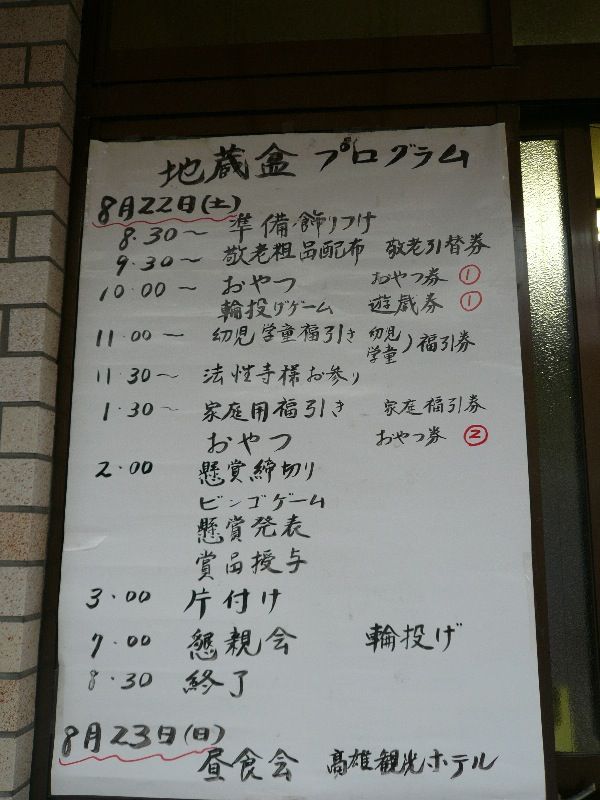 地蔵盆 プログラム
8月22日(土)
8.30〜 準備.飾りつけ
9.30〜 敬老粗品配布 敬老引替券
10.00〜 おやつ おやつ券 ①
輪投げゲーム 遊戯券 ①
11.00〜 幼児学童福引き 幼児学童)福引券
11.30〜 法性寺様お参り
1.30〜 家庭用福引き 家庭福引券
おやつ おやつ券 ②
2.00 懸賞締切り
ビンゴゲーム
懸賞発表
賞品授与
3.00 片付け
7.00 懇親会 輪投げ
8.30 終了
8月23日(日)
昼食会 高雄観光ホテル